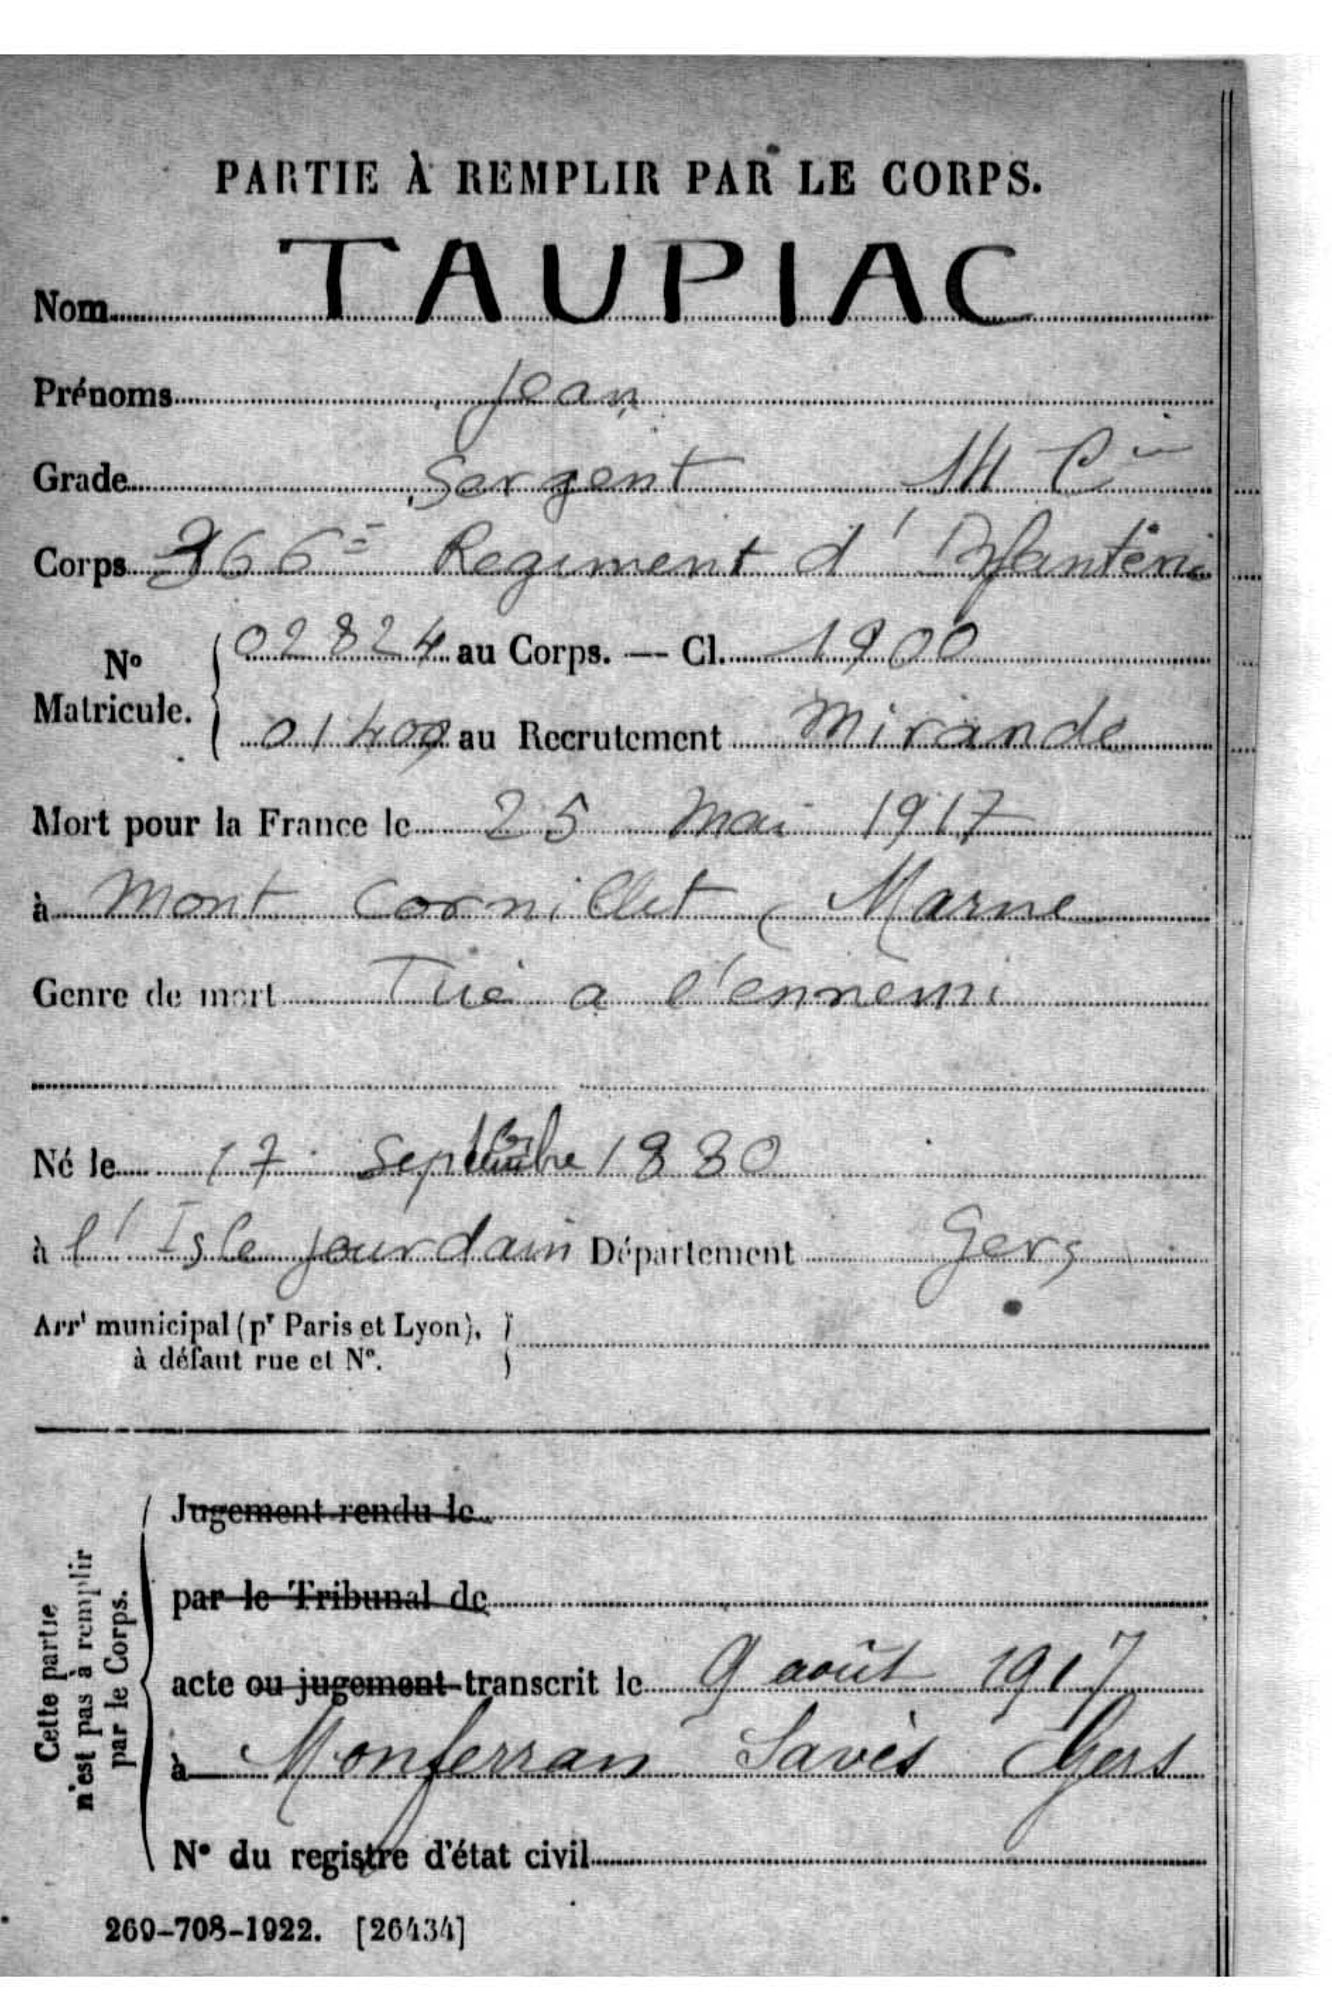 PARTIE À REMPLIR PAR LE CORPS.
Nom TAUPIAC
Prénoms Jean
Grade Sergent 14 Cie
Corps 366e Regiment d'Infanterie
N° Matricule. 02824 au Corps. — Cl. 1900
01409 au Recrutement Mirande
Mort pour la France le 25 Mai 1917
à Mont Cornillet (Marne
Genre de mort Tué a l'ennemi
Né le 17 Septembre 1880
à l'Isle jourdain Département Gers
Arrt municipal (pr Paris et Lyon),
à défaut rue et N°.
Cette partie
n'est pas à remplir
par le Corps.
Jugement rendu le
par le Tribunal de
acte ou jugement transcrit le 9 août 1917
à Monferran Savès Gers
N° du registre d'état civil
269-708-1922. [26434]